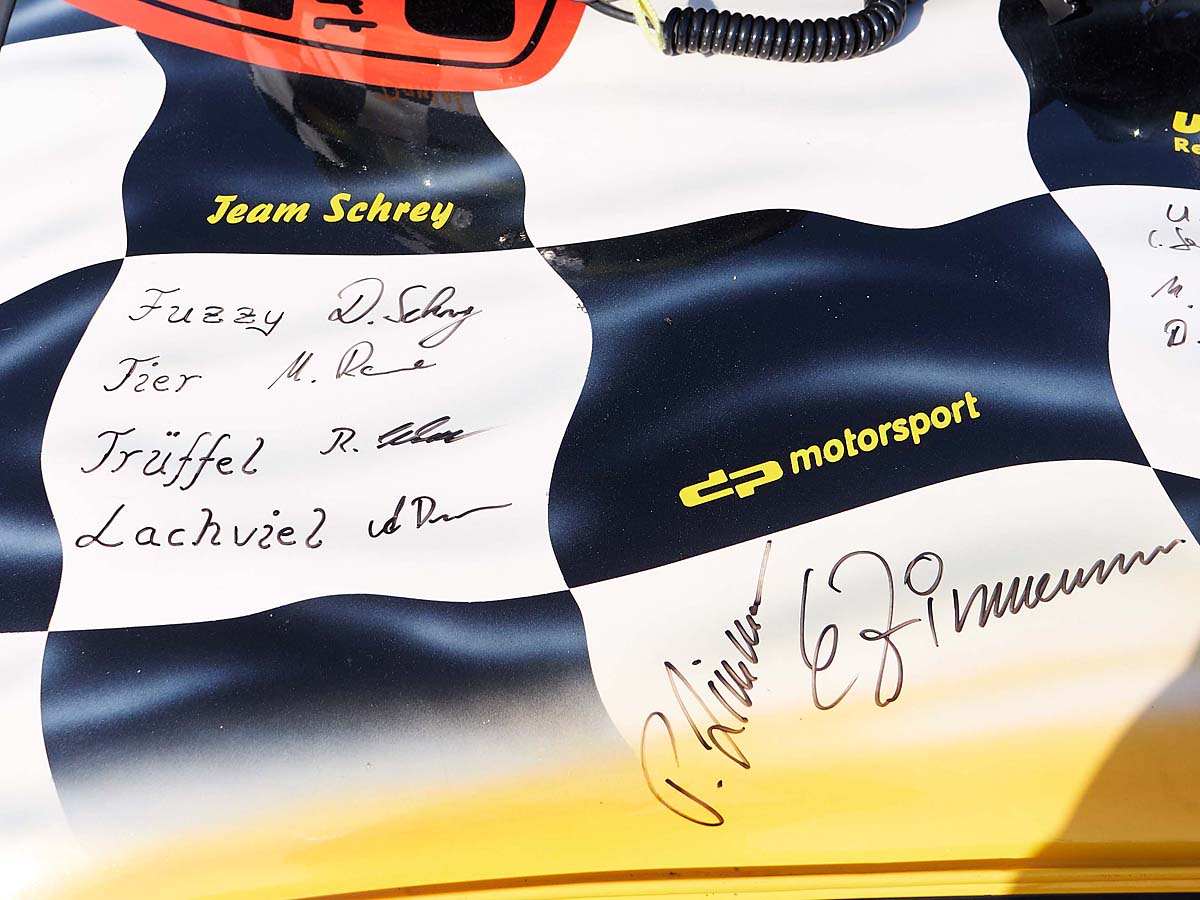 Team Schrey
Fuzzy D. Schrey
Tier M.
Trüffel R.
Lachviel
dp motorsport
P. Zimmer
E Zimmermann
U
Re
U.
C.
M.
D.